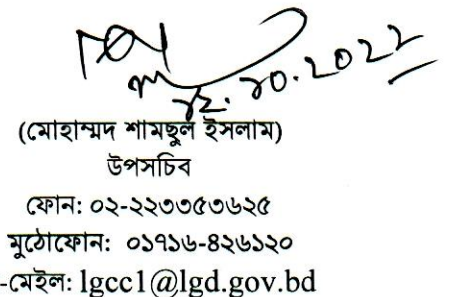 ১২.১০.২০২২
(মোহাম্মদ শামছুল ইসলাম)
উপসচিব
ফোন: ০২-২২৩৩৫৩৬২৫
মুঠোফোন: ০১৭১৬-৪২৬১২০
-মেইল: lgcc1@lgd.gov.bd